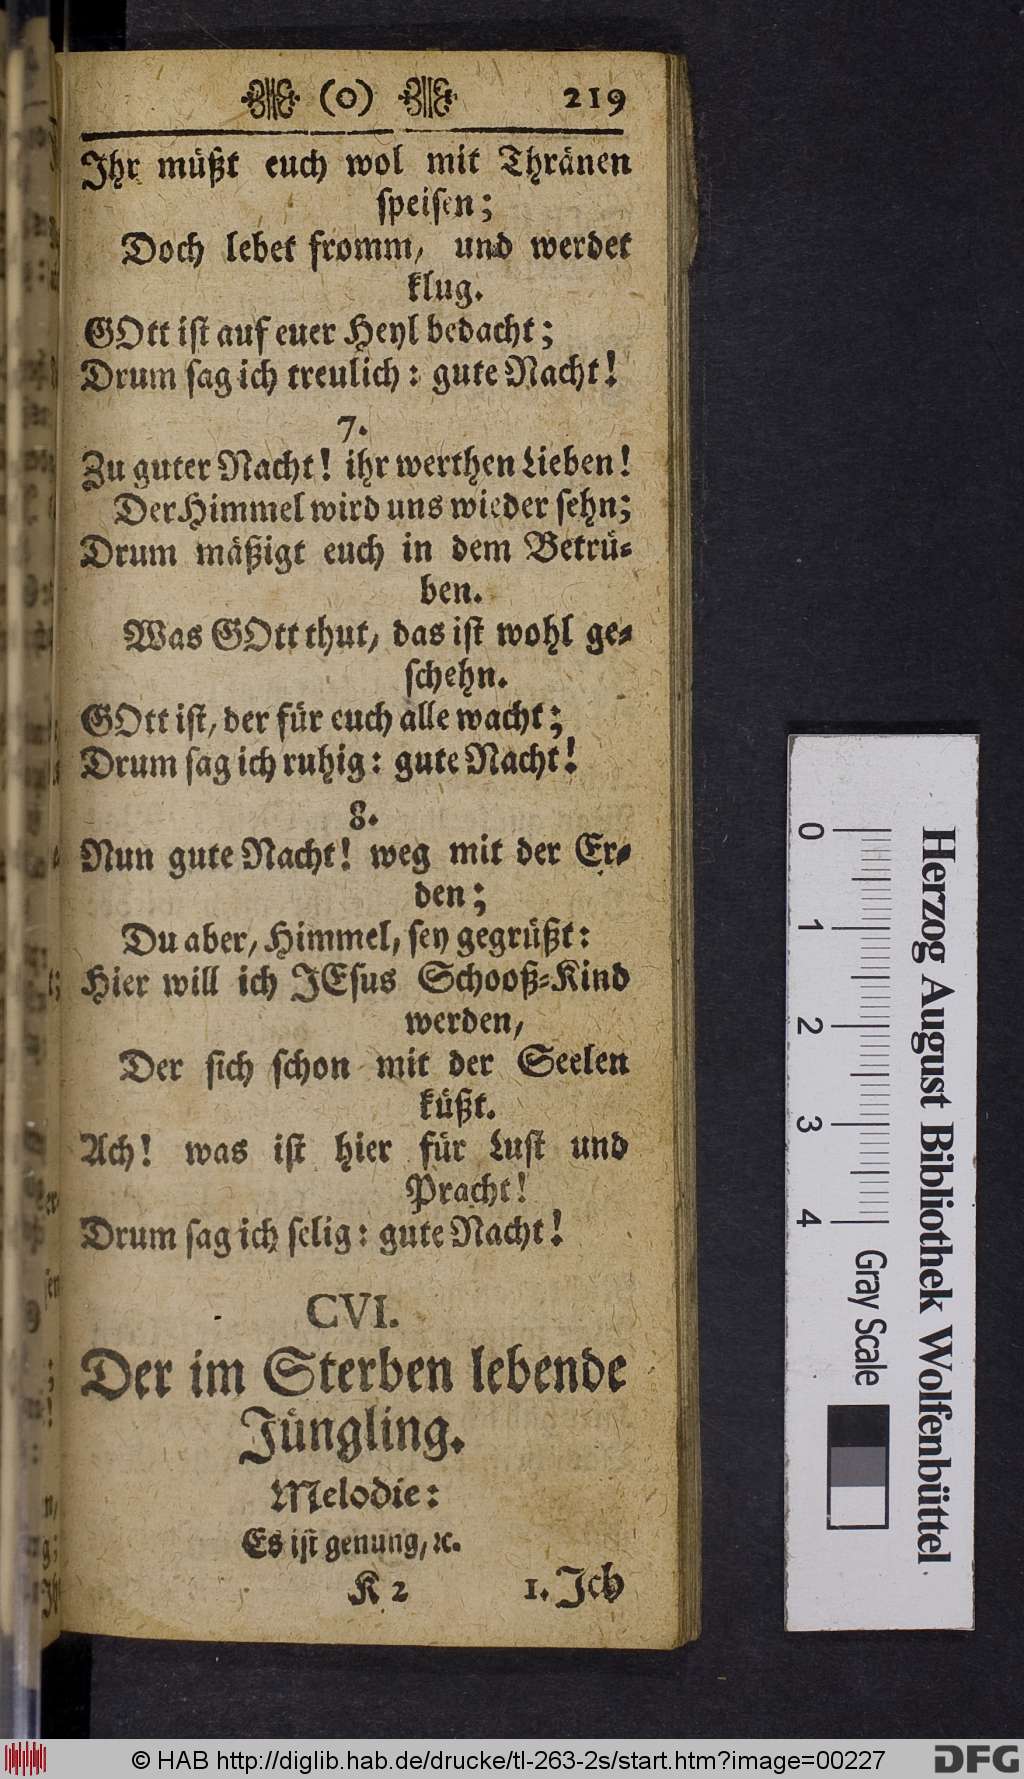 (o) 219
Ihr müßt euch wol mit Thränen
speisen;
Doch lebet fromm, und werdet
klug.
GOtt ist auf euer Heyl bedacht;
Drum sag ich treulich: gute Nacht!
7.
Zu guter Nacht! ihr werthen Lieben!
Der Himmel wird uns wieder sehn;
Drum mäßigt euch in dem Betrü-
ben.
Was GOtt thut, das ist wohl ge-
schehn.
GOtt ist, der für euch alle wacht;
Drum sag ich ruhig: gute Nacht!
8.
Nun gute Nacht! weg mit der Er-
den;
Du aber, Himmel, sey gegrüßt:
Hier will ich JEsus Schooß-Kind
werden,
Der sich schon mit der Seelen
küßt.
Ach! was ist hier für Lust und
Pracht!
Drum sag ich selig: gute Nacht!
CVI.
Der im Sterben lebende
Jüngling.
Melodie:
Es ist genung, ꝛc.
K 2 1. Ich
Herzog August Bibliothek Wolfenbüttel
0 1 2 3 4 Gray Scale
© HAB http://diglib.hab.de/drucke/tl-263-2s/start.htm?image=00227
DFG